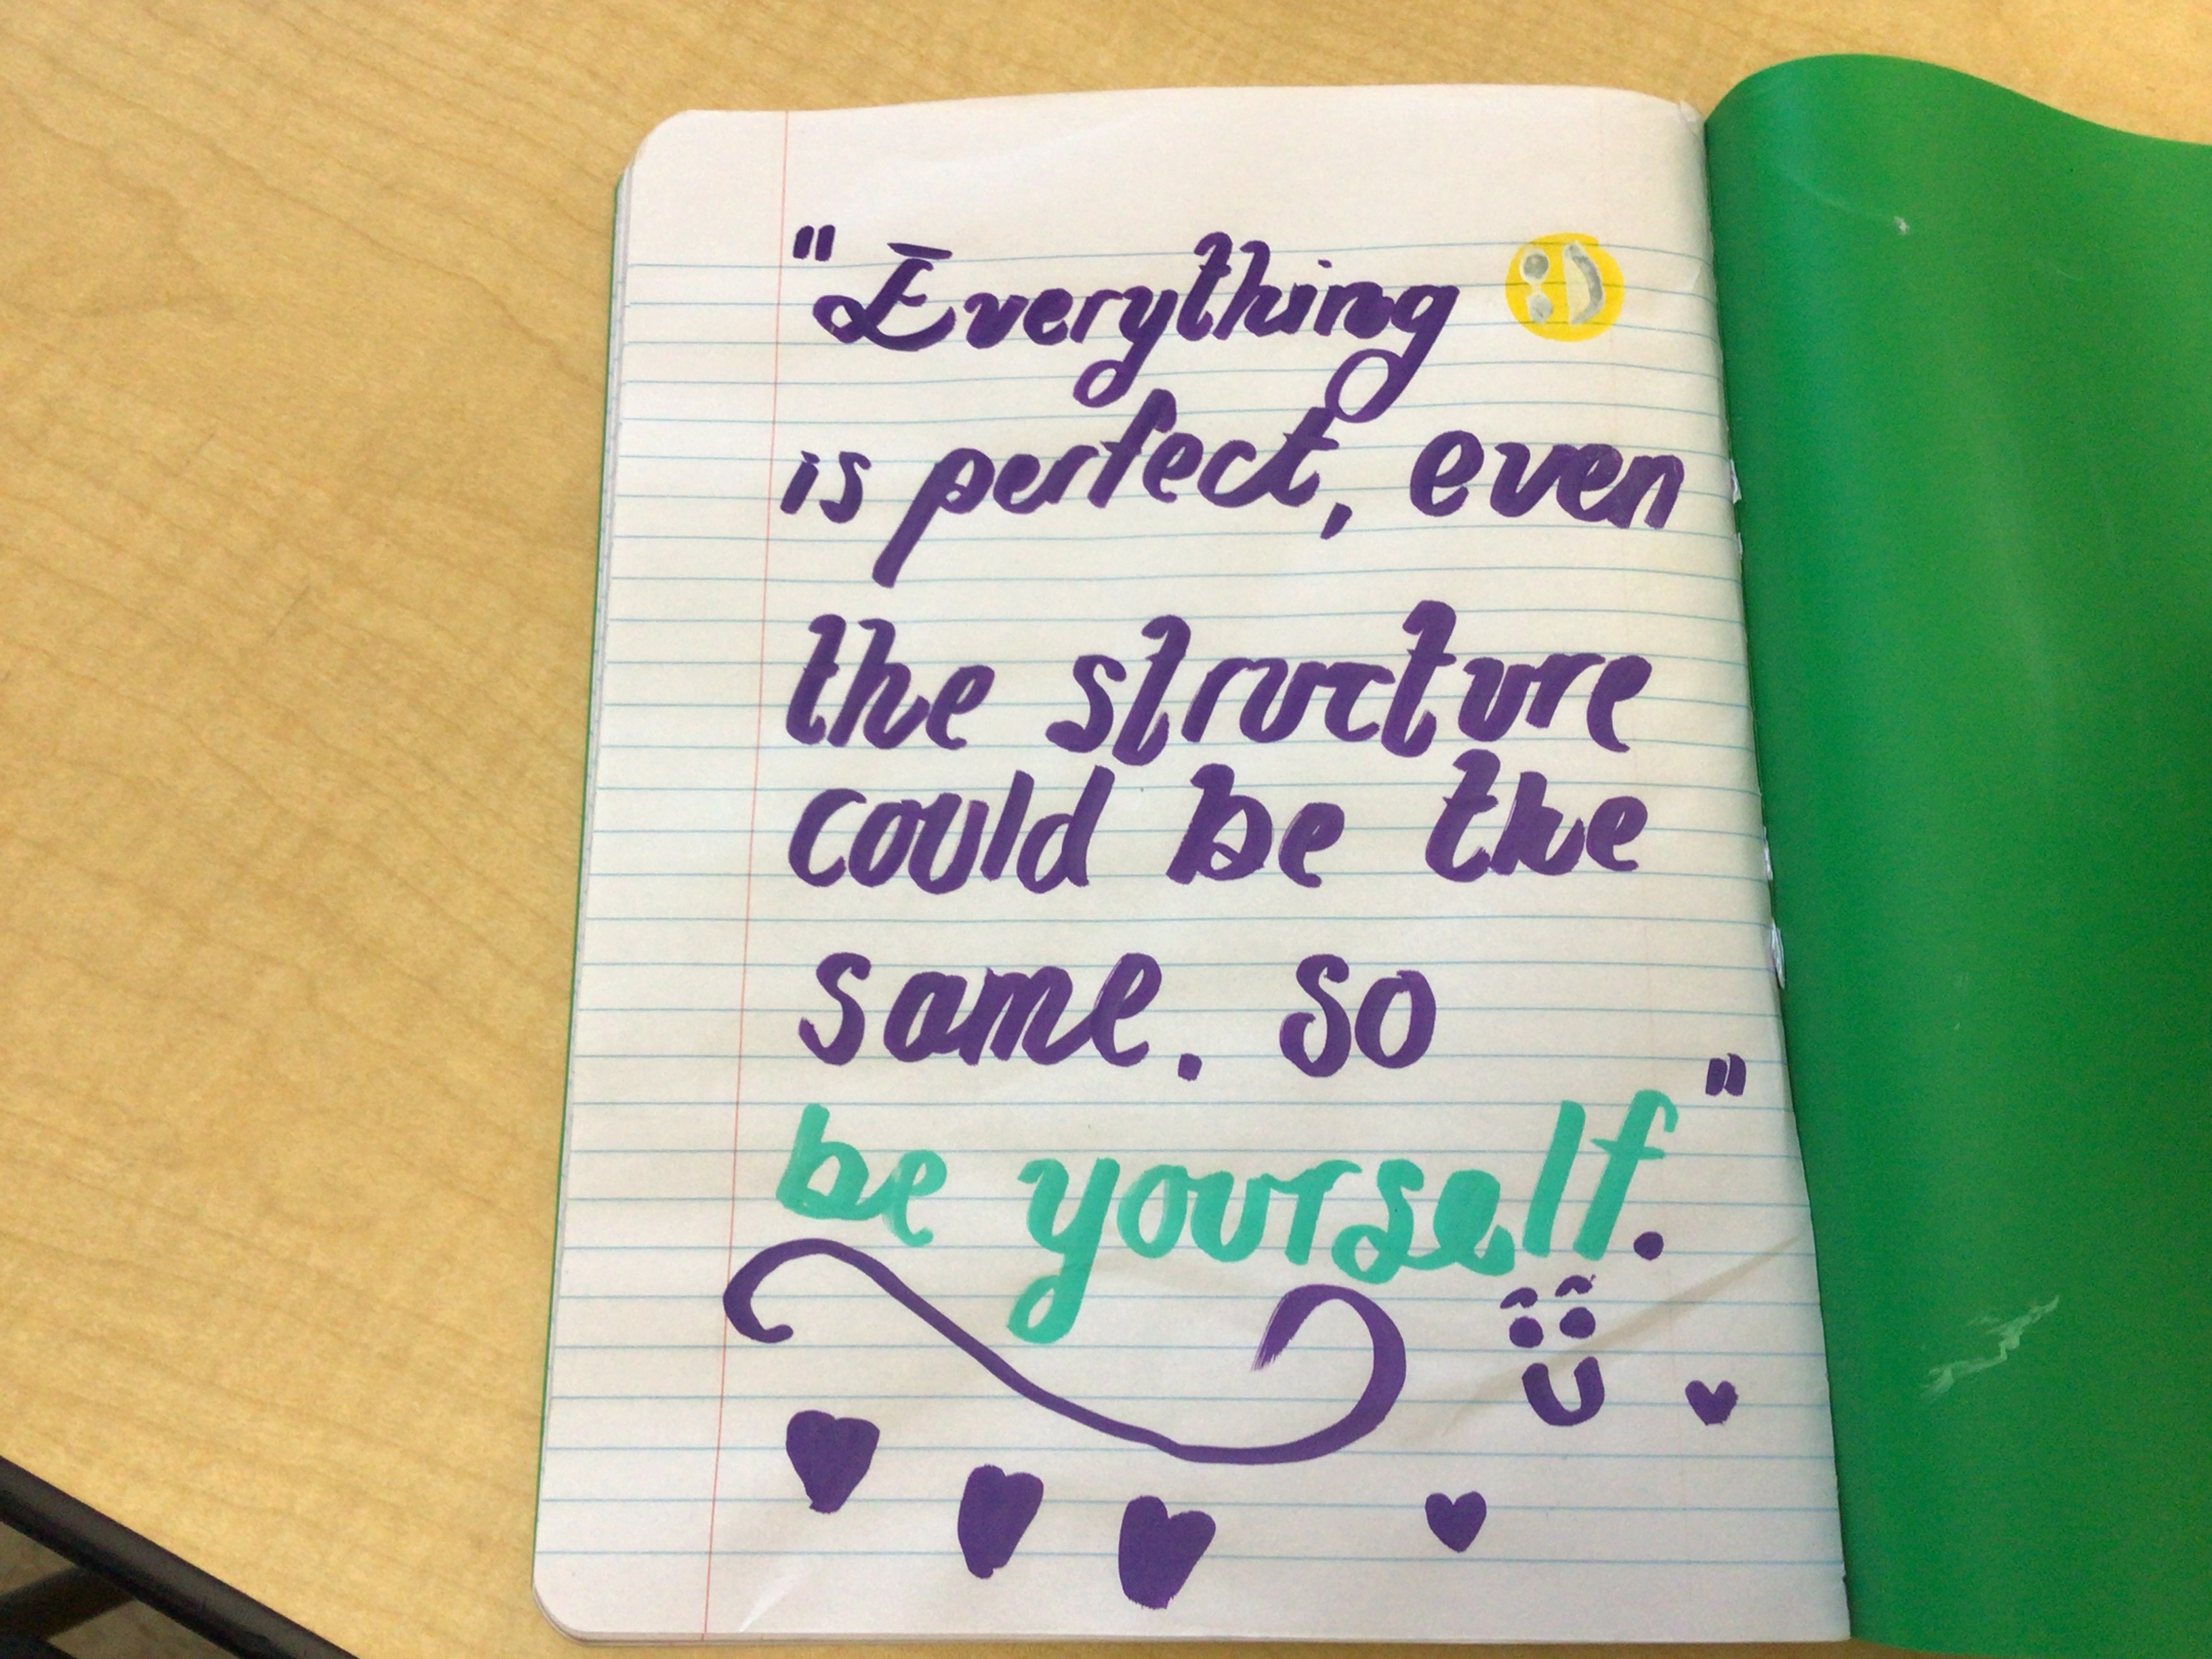 "Everything :)
is perfect, even
the structure
could be the
same. so
be yourself."